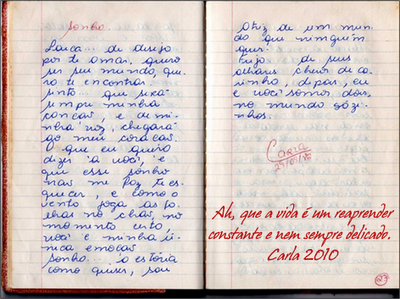 Sonho.
Louca... de desejo
por te amar, quero
ser seu mundo, que-
ro te encontrar,
sinto que seca
sempre minha
e de mi-
nha voz, chegará
ao meu coração.
O que eu quero
dizer "a você, é
que esse sonho
me faz te es-
quecer, e como o
vento joga as fo-
lhas no chão, no
momento certo,
você é minha ú-
nica emoção
sonho... a estória
como quiser, sou
Diz de um mun-
do que ninguém
quer.
Fujo de seus
olhares cheios de ca-
rinho, depois, eu
e você somos dois,
no mundo sózi-
nhos.
Carla
Ah, que a vida é um reaprender
constante e nem sempre delicado.
Carla 2010
27